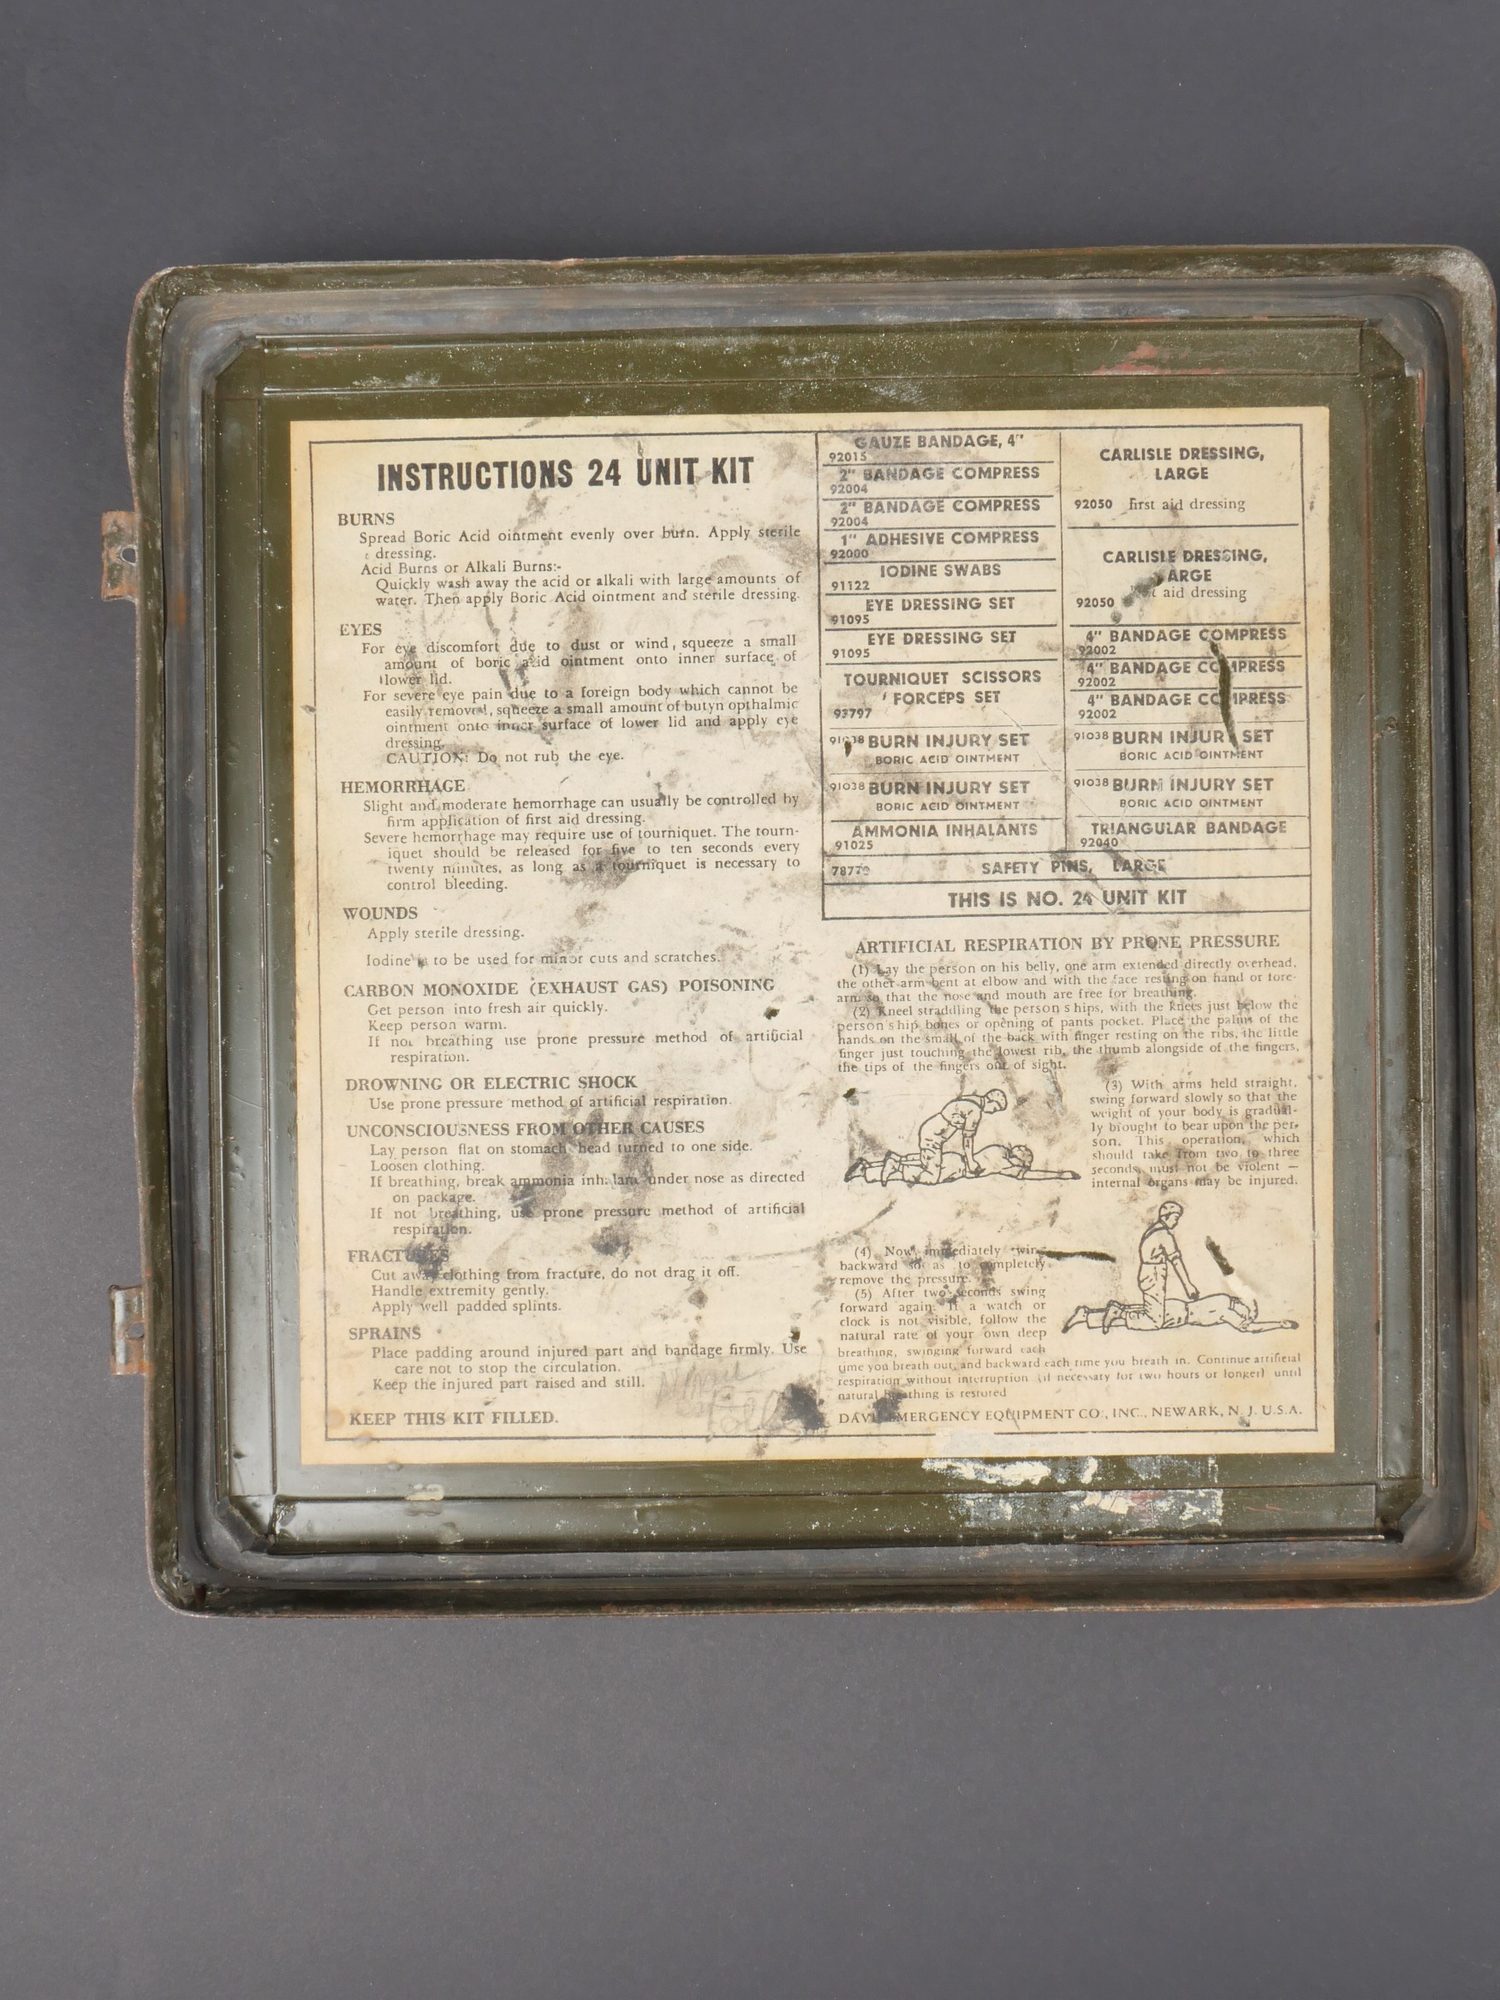 INSTRUCTIONS 24 UNIT KIT
BURNS
Spread Boric Acid ointment evenly over burn. Apply sterile
dressing.
Acid Burns or Alkali Burns:-
Quickly wash away the acid or alkali with large amounts of
water. Then apply Boric Acid ointment and sterile dressing.
EYES
For eye discomfort due to dust or wind, squeeze a small
amount of boric acid ointment onto inner surface of
lower lid.
For severe eye pain due to a foreign body which cannot be
easily removed, squeeze a small amount of butyn opthalmic
ointment onto inner surface of lower lid and apply eye
dressing.
CAUTION: Do not rub the eye.
HEMORRHAGE
Slight and moderate hemorrhage can usually be controlled by
firm application of first aid dressing.
Severe hemorrhage may require use of tourniquet. The tourn-
iquet should be released for five to ten seconds every
twenty minutes, as long as a tourniquet is necessary to
control bleeding.
WOUNDS
Apply sterile dressing.
Iodine is to be used for minor cuts and scratches.
CARBON MONOXIDE (EXHAUST GAS) POISONING
Get person into fresh air quickly.
Keep person warm.
If not breathing use prone pressure method of artificial
respiration.
DROWNING OR ELECTRIC SHOCK
Use prone pressure method of artificial respiration.
UNCONSCIOUSNESS FROM OTHER CAUSES
Lay person flat on stomach head turned to one side.
Loosen clothing.
If breathing, break ammonia inhalant under nose as directed
on package.
If not breathing, use prone pressure method of artificial
respiration.
FRACTURES
Cut away clothing from fracture, do not drag it off.
Handle extremity gently.
Apply well padded splints.
SPRAINS
Place padding around injured part and bandage firmly. Use
care not to stop the circulation.
Keep the injured part raised and still.
KEEP THIS KIT FILLED.
GAUZE BANDAGE, 4"
92015
2" BANDAGE COMPRESS
92004
2" BANDAGE COMPRESS
92004
1" ADHESIVE COMPRESS
92000
IODINE SWABS
91122
EYE DRESSING SET
91095
EYE DRESSING SET
91095
TOURNIQUET SCISSORS
FORCEPS SET
93797
91038 BURN INJURY SET
BORIC ACID OINTMENT
91038 BURN INJURY SET
BORIC ACID OINTMENT
AMMONIA INHALANTS
91025
CARLISLE DRESSING,
LARGE
92050 first aid dressing
CARLISLE DRESSING,
LARGE
92050 first aid dressing
4" BANDAGE COMPRESS
92002
4" BANDAGE COMPRESS
92002
4" BANDAGE COMPRESS
92002
91038 BURN INJURY SET
BORIC ACID OINTMENT
91038 BURN INJURY SET
BORIC ACID OINTMENT
TRIANGULAR BANDAGE
92040
SAFETY PINS, LARGE
THIS IS NO. 24 UNIT KIT
ARTIFICIAL RESPIRATION BY PRONE PRESSURE
(1) Lay the person on his belly, one arm extended directly overhead,
the other arm bent at elbow and with the face resting on hand or fore-
arm so that the nose and mouth are free for breathing.
(2) Kneel straddling the person's hips, with the knees just below the
person's hip bones or opening of pants pocket. Place the palms of the
hands on the small of the back with finger resting on the ribs, the little
finger just touching the lowest rib, the thumb alongside of the fingers,
the tips of the fingers out of sight.
(3) With arms held straight,
swing forward slowly so that the
weight of your body is gradual-
ly brought to bear upon the per-
son. This operation, which
should take from two to three
seconds, must not be violent —
internal organs may be injured.
(4) Now immediately swing
backward so as to completely
remove the pressure.
(5) After two seconds swing
forward again. If a watch or
clock is not visible, follow the
natural rate of your own deep
breathing, swinging forward each
time you breath out, and backward each time you breath in. Continue artificial
respiration without interruption (if necessary for two hours or longer) until
natural breathing is restored
DAVIS EMERGENCY EQUIPMENT CO., INC., NEWARK, N. J. U.S.A.